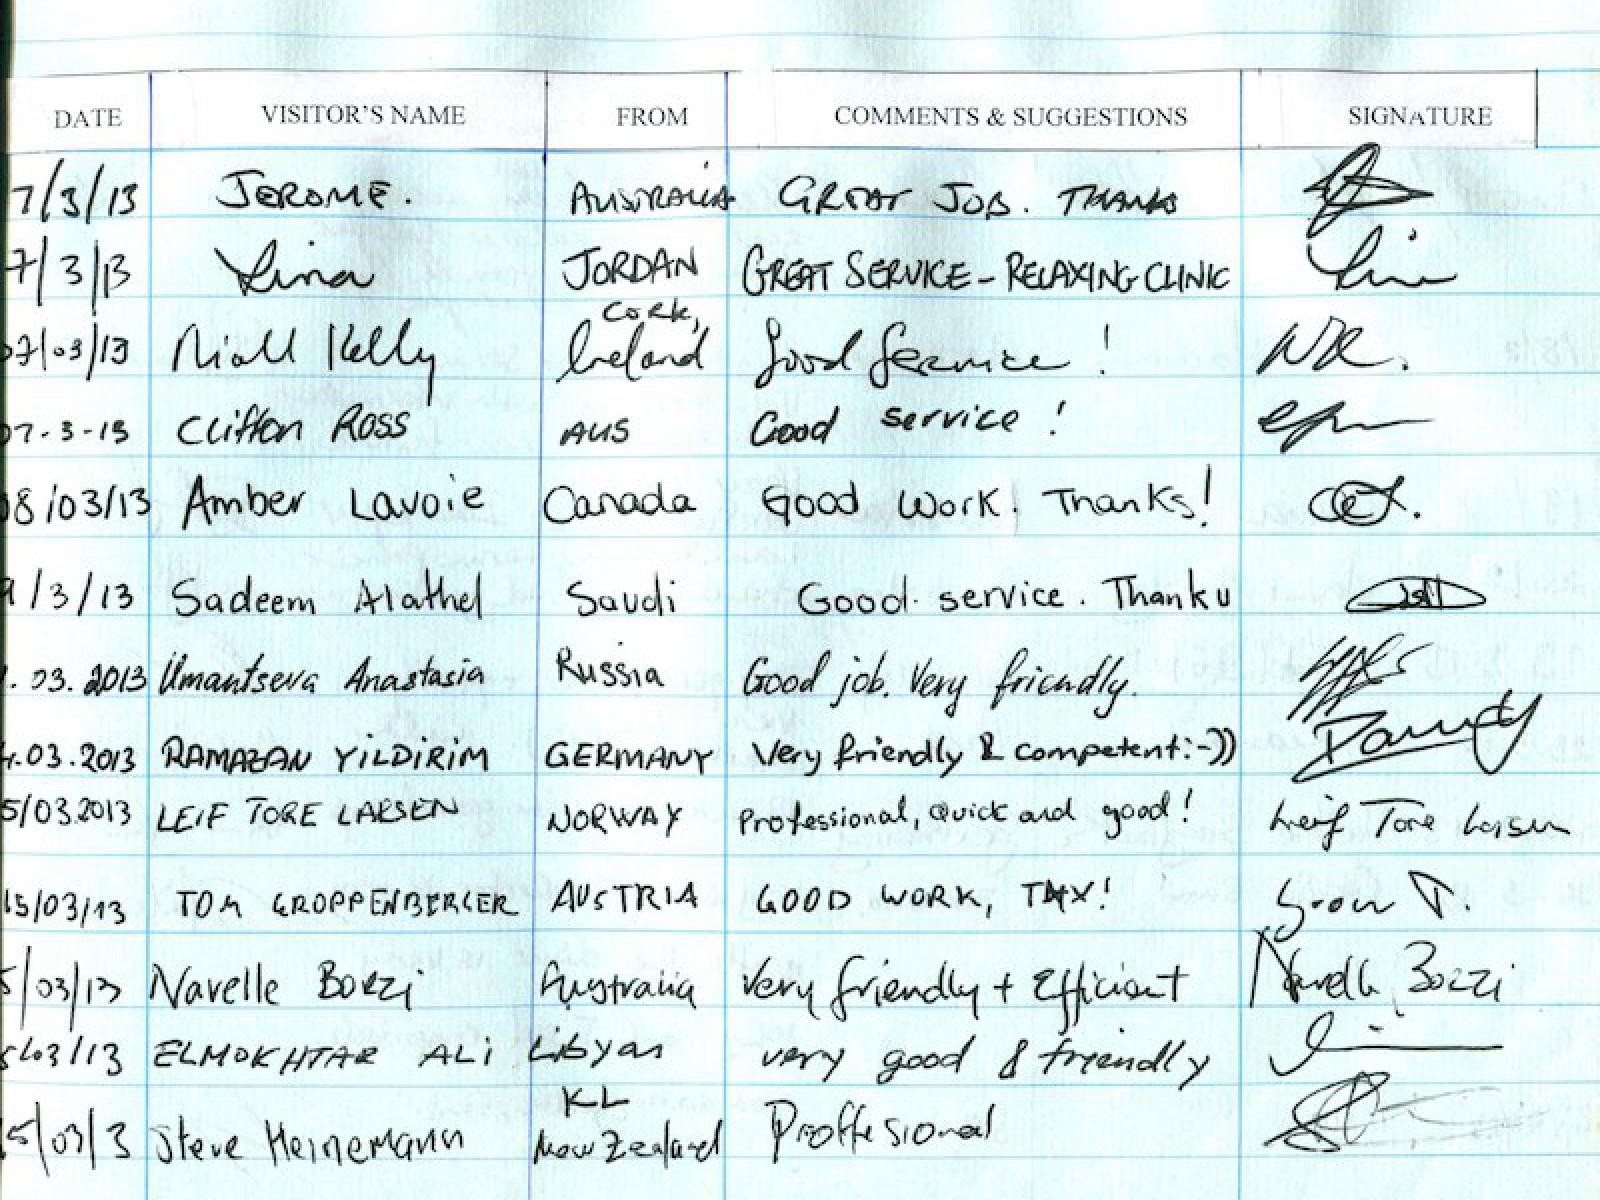 DATE VISITOR'S NAME FROM COMMENTS & SUGGESTIONS SIGNATURE
7/3/13 JEROME. AUSTRALIA GREAT JOB. THANKS
7/3/13 Lina JORDAN GREAT SERVICE - RELAXING CLINIC
Cork,
07/03/13 Niall Kelly Ireland Good Service !
07-3-13 Clifton Ross AUS Good service !
08/03/13 Amber Lavoie Canada Good Work! Thanks!
9/3/13 Sadeem Alathel Saudi Good service. Thank u
.03.2013 Umantseva Anastasia Russia Good job. Very friendly.
4.03.2013 RAMAZAN YiLDiRiM GERMANY Very friendly & competent :-))
5/03.2013 LEIF TORE LARSEN NORWAY Professional, Quick and good! Leif Tore Larsen
15/03/13 TOM GROPPENBERGER AUSTRIA GOOD WORK, THX!
5/03/13 Navelle Bozzi Australia Very friendly + Efficient Navelle Bozzi
5/03/13 ELMOKHTAR ALi Libyan very good & friendly
KL
15/03/3 Steve Heinemann New Zealand Proffesional